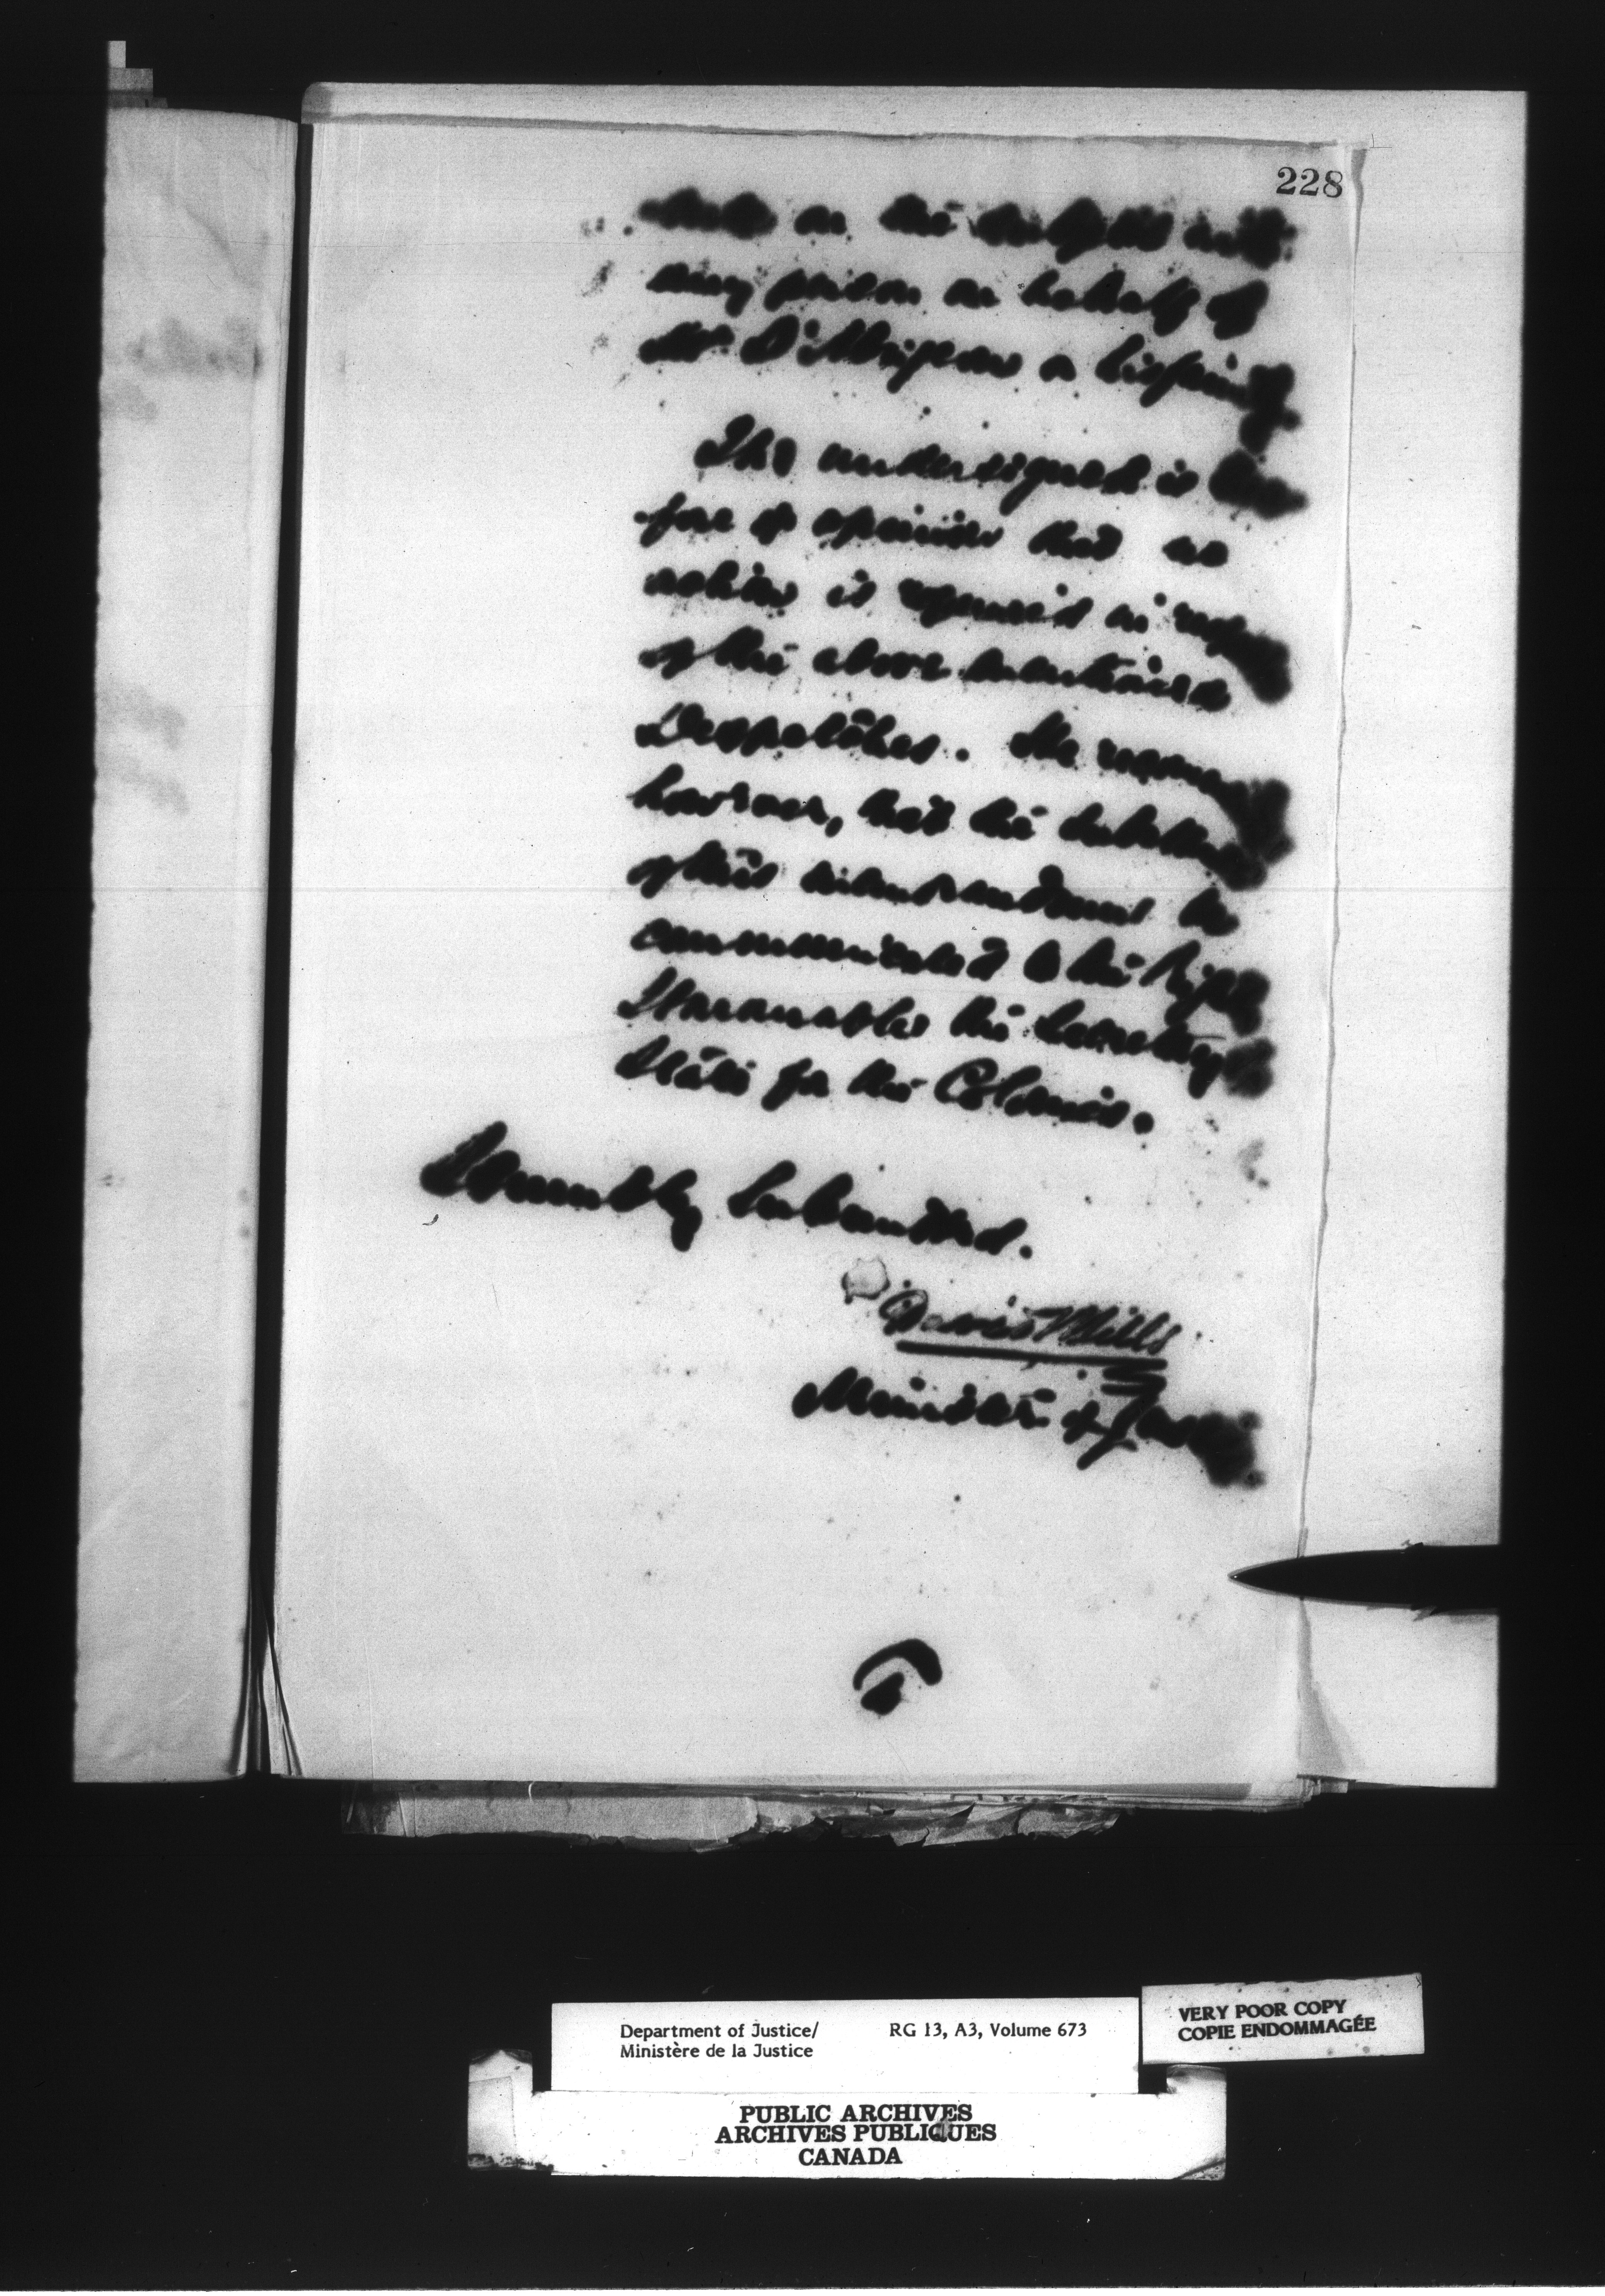 228
on the subject with
any person on behalf of
Mr. D'Abrigeon or his firm
The undersigned is there-
fore of opinion that no
action is required in respect
of the above mentioned
Despatches. He recommends
however, that the substance
of this memorandum be
communicated to the Right
Honourable the Secretary of
State for the Colonies.
Humbly submitted.
David Mills
Minister of Justice
Department of Justice/ RG 13, A3, Volume 673
Ministère de la Justice
VERY POOR COPY
COPIE ENDOMMAGÉE
PUBLIC ARCHIVES
ARCHIVES PUBLIQUES
CANADA